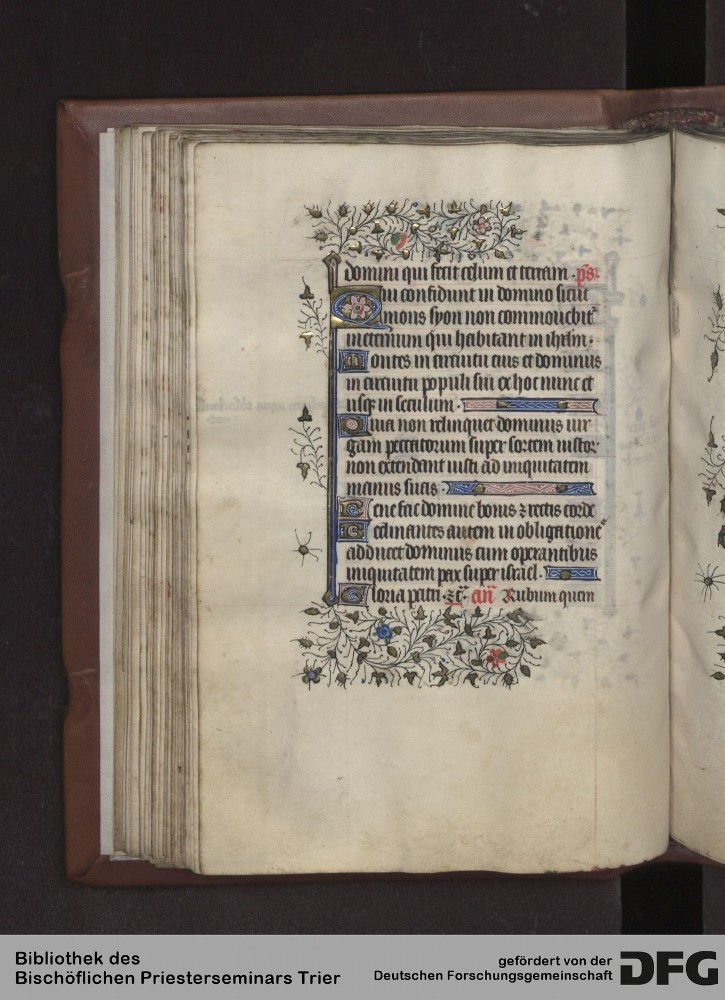 domini qui fecit celum et terram · ps.
Qui confidunt in domino sicut
mons syon non commouebit᷑
in eternum qui habitant in ihrlm·
Montes in circuitu eius et dominus
in circuitu populi sui ex hoc nunc et
usqꝫ in seculum ·
Quia non relinquet dominus uir
gam peccatorum super sortem iustor
non extendant iusti ad iniquitatem
manus suas ·
Bene fac domine bonis ⁊ rectis corde
Declinantes autem in obligatione
adducet dominus cum operantibus
iniquitatem pax super israel ·
Gloria patri · ⁊c̄· an̄ Rubum quem
Bibliothek des
Bischöflichen Priesterseminars Trier
gefördert von der
Deutschen Forschungsgemeinschaft
DFG